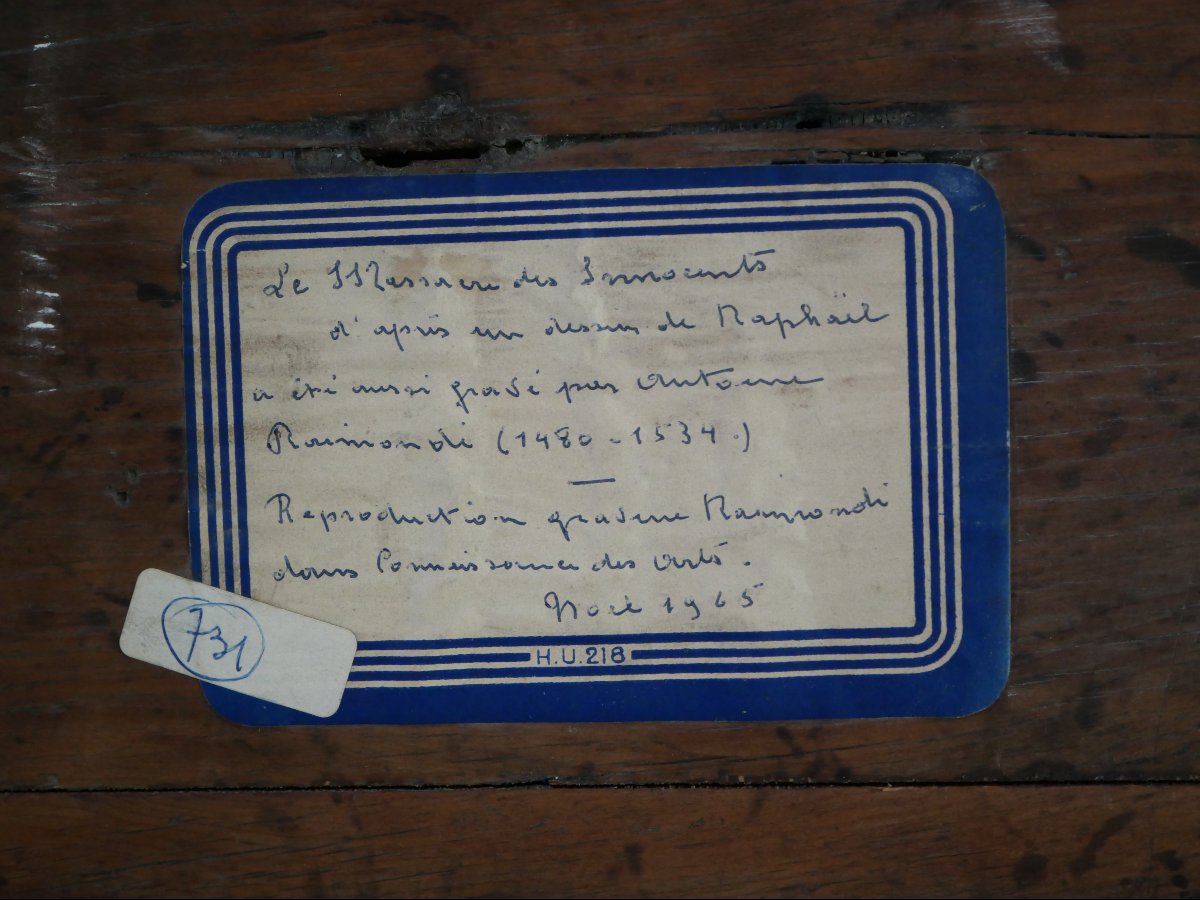 Le Massacre des Innocents
d'après un dessin de Raphaël
a été aussi gravé par Antoine
Raimondi (1480-1534.)
—
Reproduction gravure Raimondi
dans Connaissance des Arts.
Noël 1965
H.U.218
731